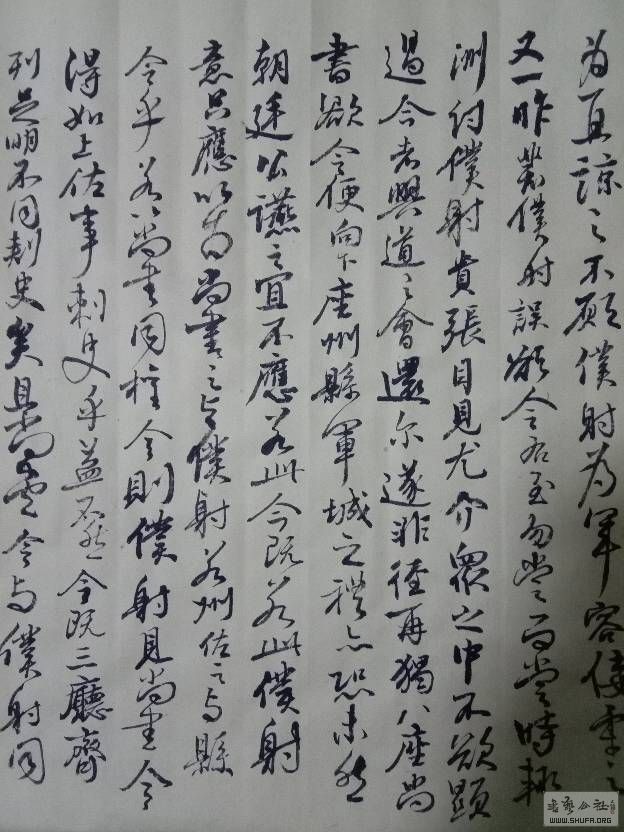 为直諒之不願僕射为軍容佞柔之
又一昨裴僕射誤欲令右至勾當尚書當時輒
僕射貴張目見尤介眾之中不欲顯
過今者興道之會還尔遂非徑再猲八座尚
書欲令便向下座州縣軍城之禮亦恐未然
朝廷公讌之宜不應若此今既若此僕射
意只應以為尚書之与僕射若州佐之与縣
令乎若以尚書同於令則僕射見尚書令
得如上佐事刺史乎益不然今既三廳齊
列足明不同刺史矣且尚書令与僕射同
書藝公社
WWW.SHUFA.ORG